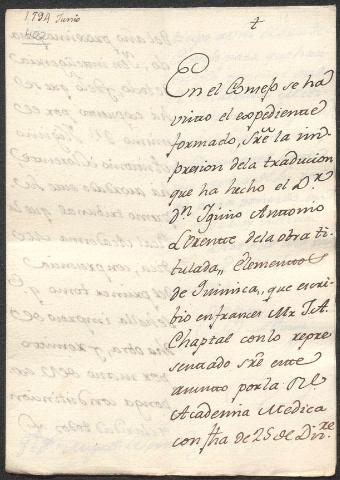 1794 Junio
402
t
En el Consejo se há
visto el expediente
formado, Sre la im-
presion dela traducion
que ha hecho el Dr.
Dn. Iginio Antonio
Llorente dela obra ti-
tulada,, Elementos
de Quimica,, que escri-
bio en frances Mr. J. A.
Chaptal conlo repre-
sentado sre este
asunto por la Rl.
Academia Medica
con fha de 25 de Dire.